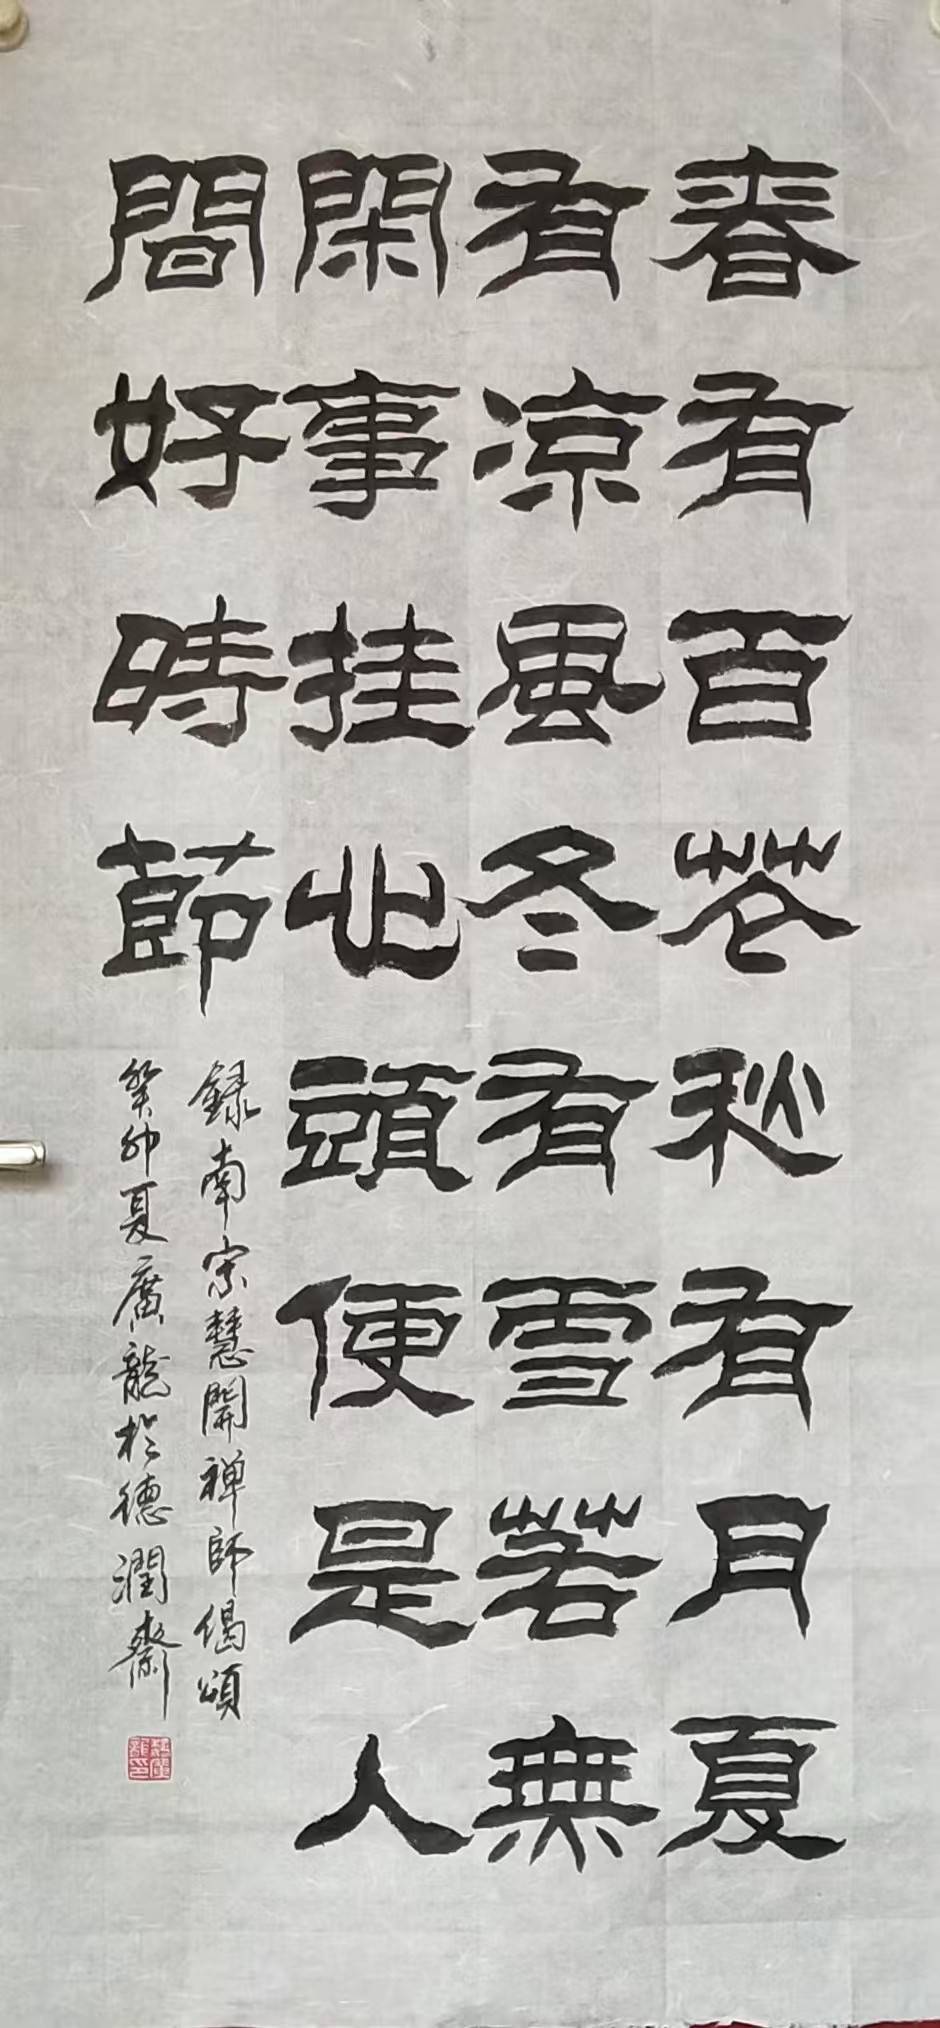 春有百花秋有月夏
有凉風冬有雪若無
閑事挂心頭便是人
間好時節
録南宗慧開禅師偈頌
癸卯夏廣龍於德潤齋